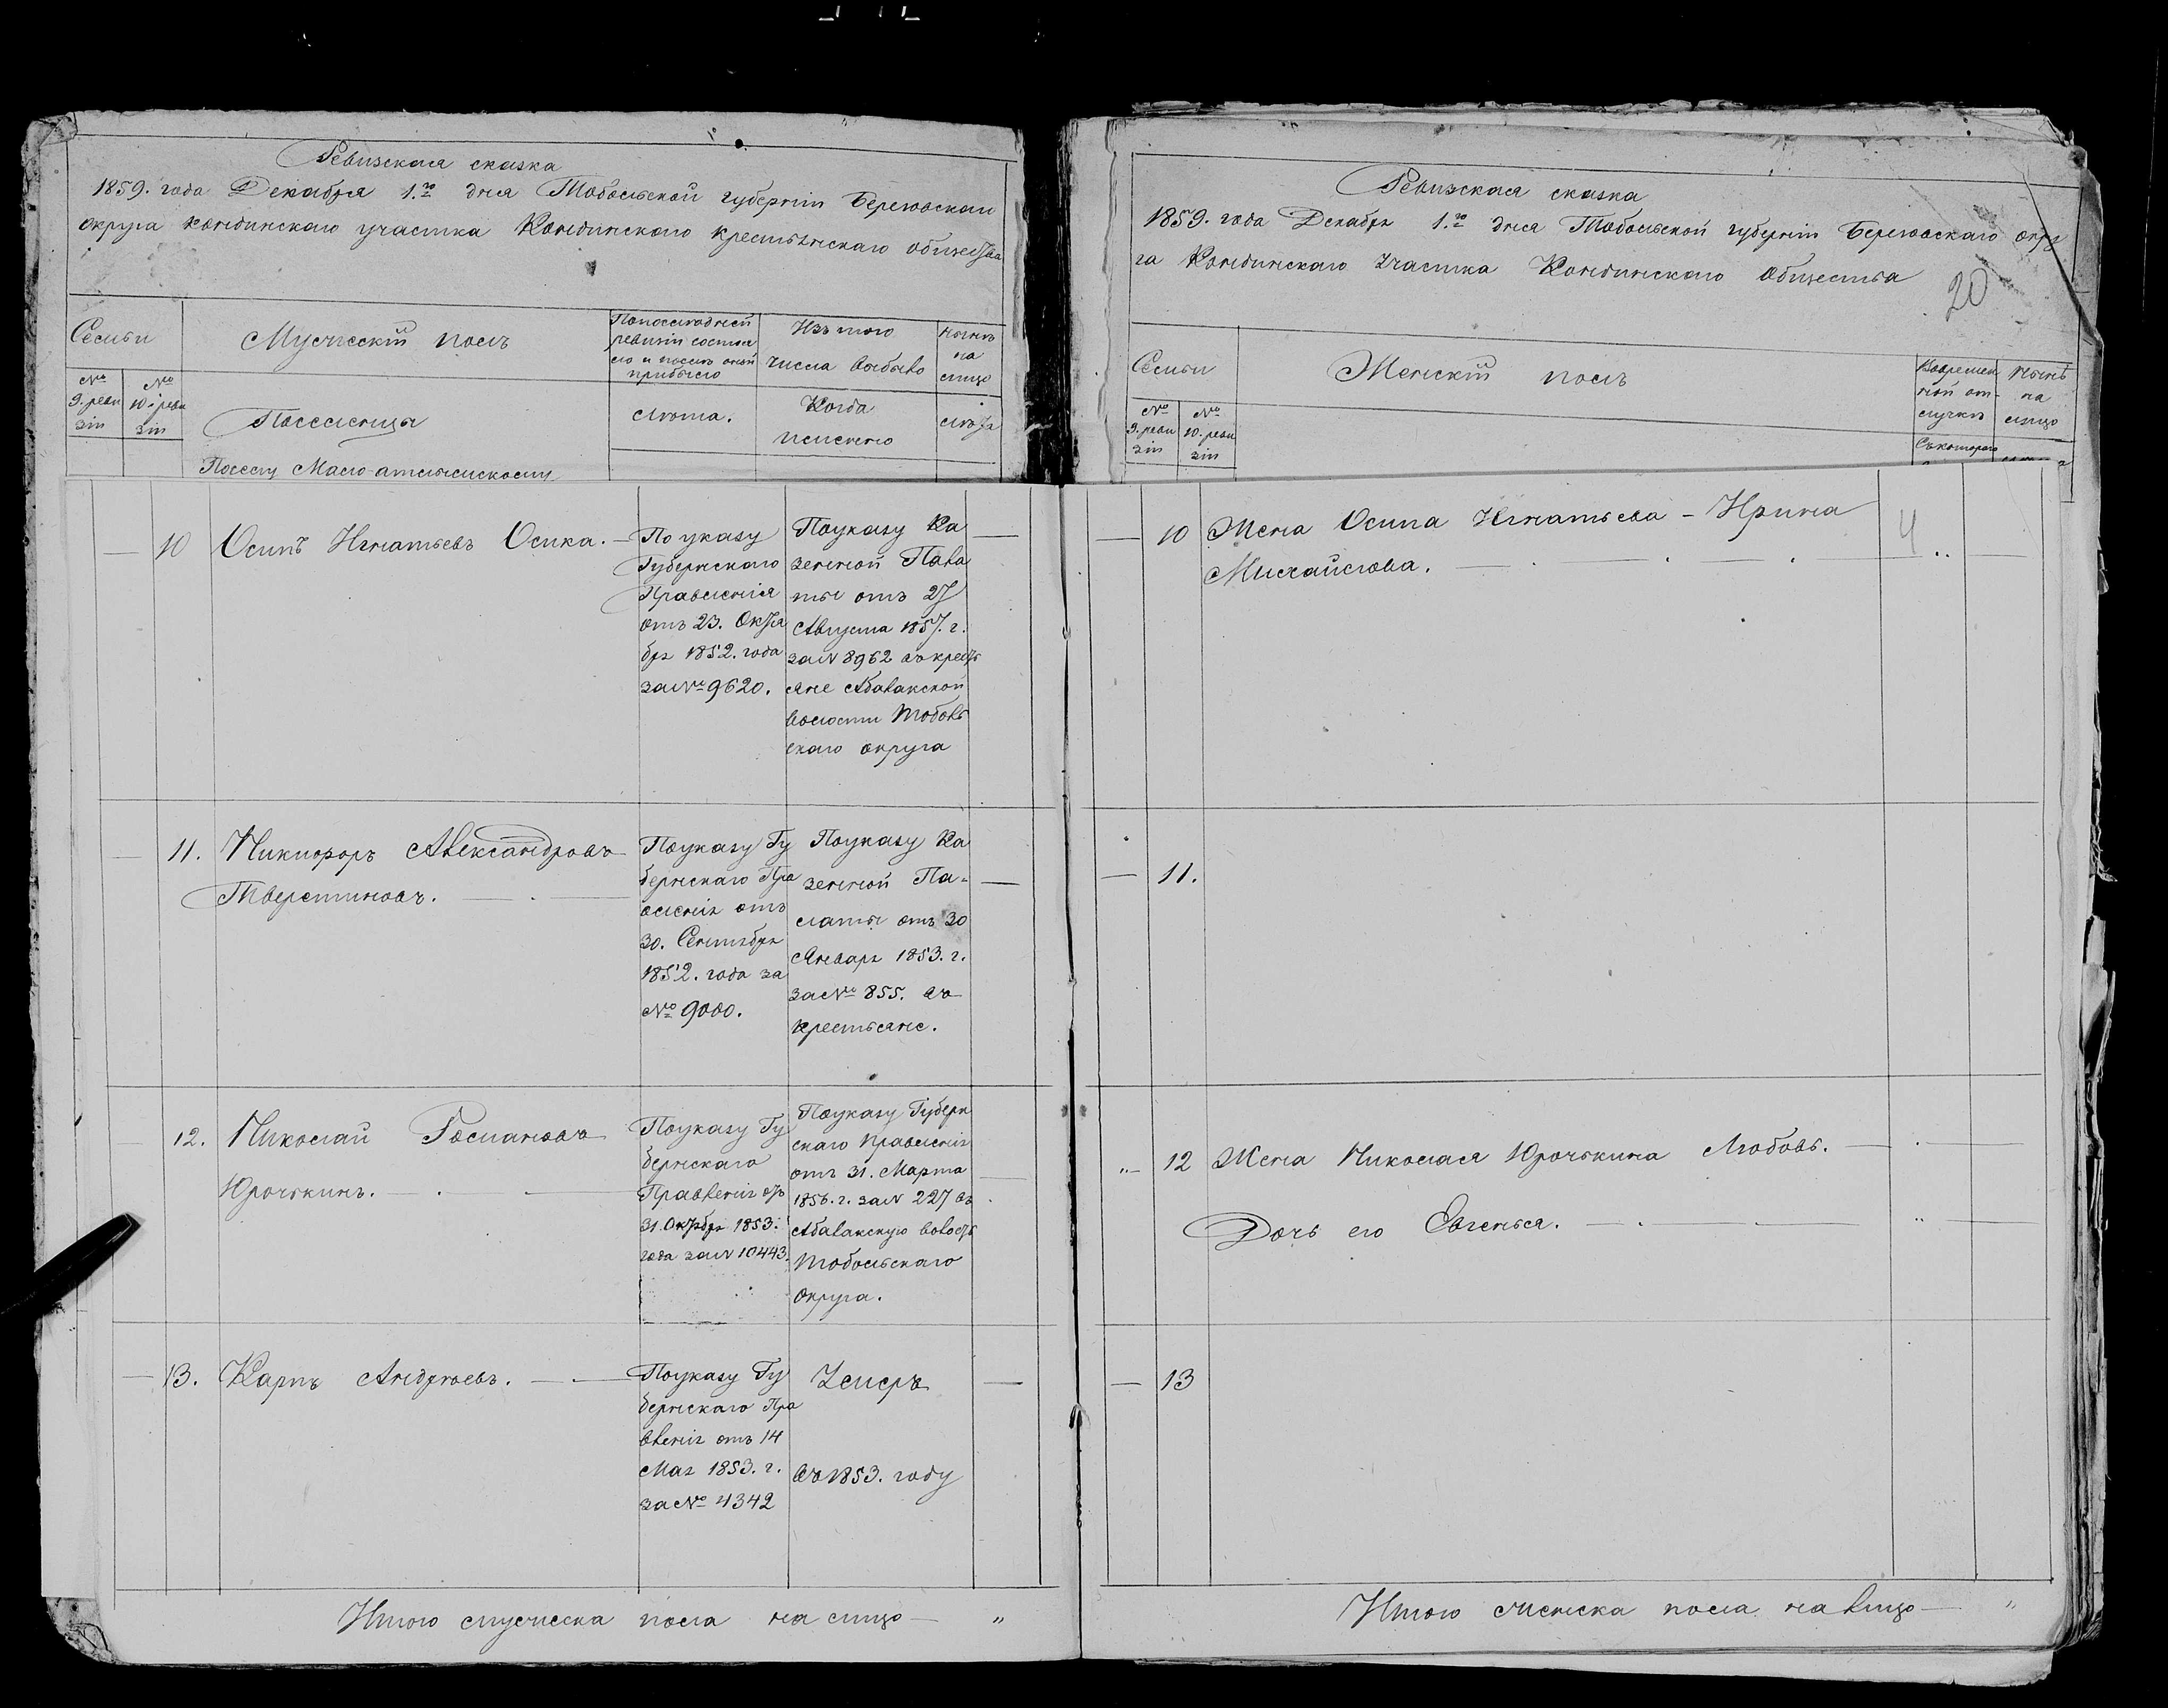 Ревизская сказка
1859. года Декабря 1.го дня Тобольской губернiи Березовскаго
округа Кондинскаго участка Кондинскаго крестьянскаго общества
Семьи
Мужескiй полъ
По последней
ревизiи состоя
ло и после оной
прибыло
Изъ того
числа выбыло
Ныне
на
лицо
№
9. реви
зiи
№
10. реви
зiи
Поселенцы
Лета.
Когда
именно
Лета
Поселу Мало-атлымскому
10 Осипъ Игнатьевъ Осика.
По указу
Губернскаго
Правленiя
отъ 23. Октя
бря 1852. года
за № 9620.
По указу Ка
зенной Пала
ты отъ 27
Августа 1857. г.
за N 8962 въ кресть
яне Абалакской
волости Тоболь
скаго округа
11. Никифоръ Александровъ
Тверетиновъ.
По указу Гу
бернскаго Пра
вленiя отъ
30. Сентября
1852. года за
№ 9000.
По указу Ка
зенной Па-
латы отъ 30
Января 1853. г.
за № 855. въ
крестьяне.
12. Николай Романовъ
Юрочкинъ.
По указу Гу
бернскаго
Правленiя отъ
31. Октября 1853.
года за N 10443.
По указу Губерн
скаго Правленiя
отъ 31. Марта
1856. г. за N 227 въ
Абалакскую волость
Тобольскаго
округа.
13. Карпъ Андреевъ.
По указу Гу
бернскаго Пра
вленiя отъ 14
Мая 1853. г.
за № 4342
Умеръ
въ 1853. году
Итого мужеска пола на лицо — "
Ревизская сказка
1859. года Декабря 1.го дня Тобольской губернiи Березовскаго окру
га Кондинскаго участка Кондинскаго общества
20
Семьи
Женскiй полъ
Во времен
ной от-
лучке
Ныне
на
лицо
№
9. реви
зiи
№
10. реви
зiи
Съ котораго
10 Жена Осипа Игнатьева - Ирина
Михайлова.
11.
12 Жена Николая Юрочкина Любовь.
Дочь его Евгенья.
13
Итого женска пола на лицо — "